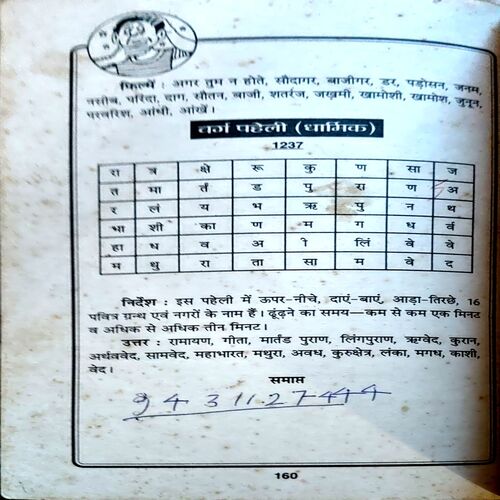 फिल्में : अगर तुम न होते, सौदागर, बाजीगर, डर, पड़ोसन, जनम,
नसीब, परिंदा, दाग, सौतन, बाजी, शतरंज, जख्मी, खामोशी, खामोश, जुनून,
परवरिश, आंधी, आंखें।
वर्ग पहेली (धार्मिक)
1237
रा त्र क्षे रू कु ण सा ज
त मा र्तं ड पु रा ण अ
र लं य भ ऋ पु न थ
भा शी का ण म ग ध र्व
हा ध व अ ो लिं वे वे
म थु रा ता सा म वे द
निर्देश : इस पहेली में ऊपर-नीचे, दाएं-बाएं, आड़ा-तिरछे, 16
पवित्र ग्रन्थ एवं नगरों के नाम हैं। ढूंढ़ने का समय—कम से कम एक मिनट
व अधिक से अधिक तीन मिनट।
उत्तर : रामायण, गीता, मार्तंड पुराण, लिंगपुराण, ऋग्वेद, कुरान,
अर्थववेद, सामवेद, महाभारत, मथुरा, अवध, कुरुक्षेत्र, लंका, मगध, काशी,
वेद।
समाप्त
160